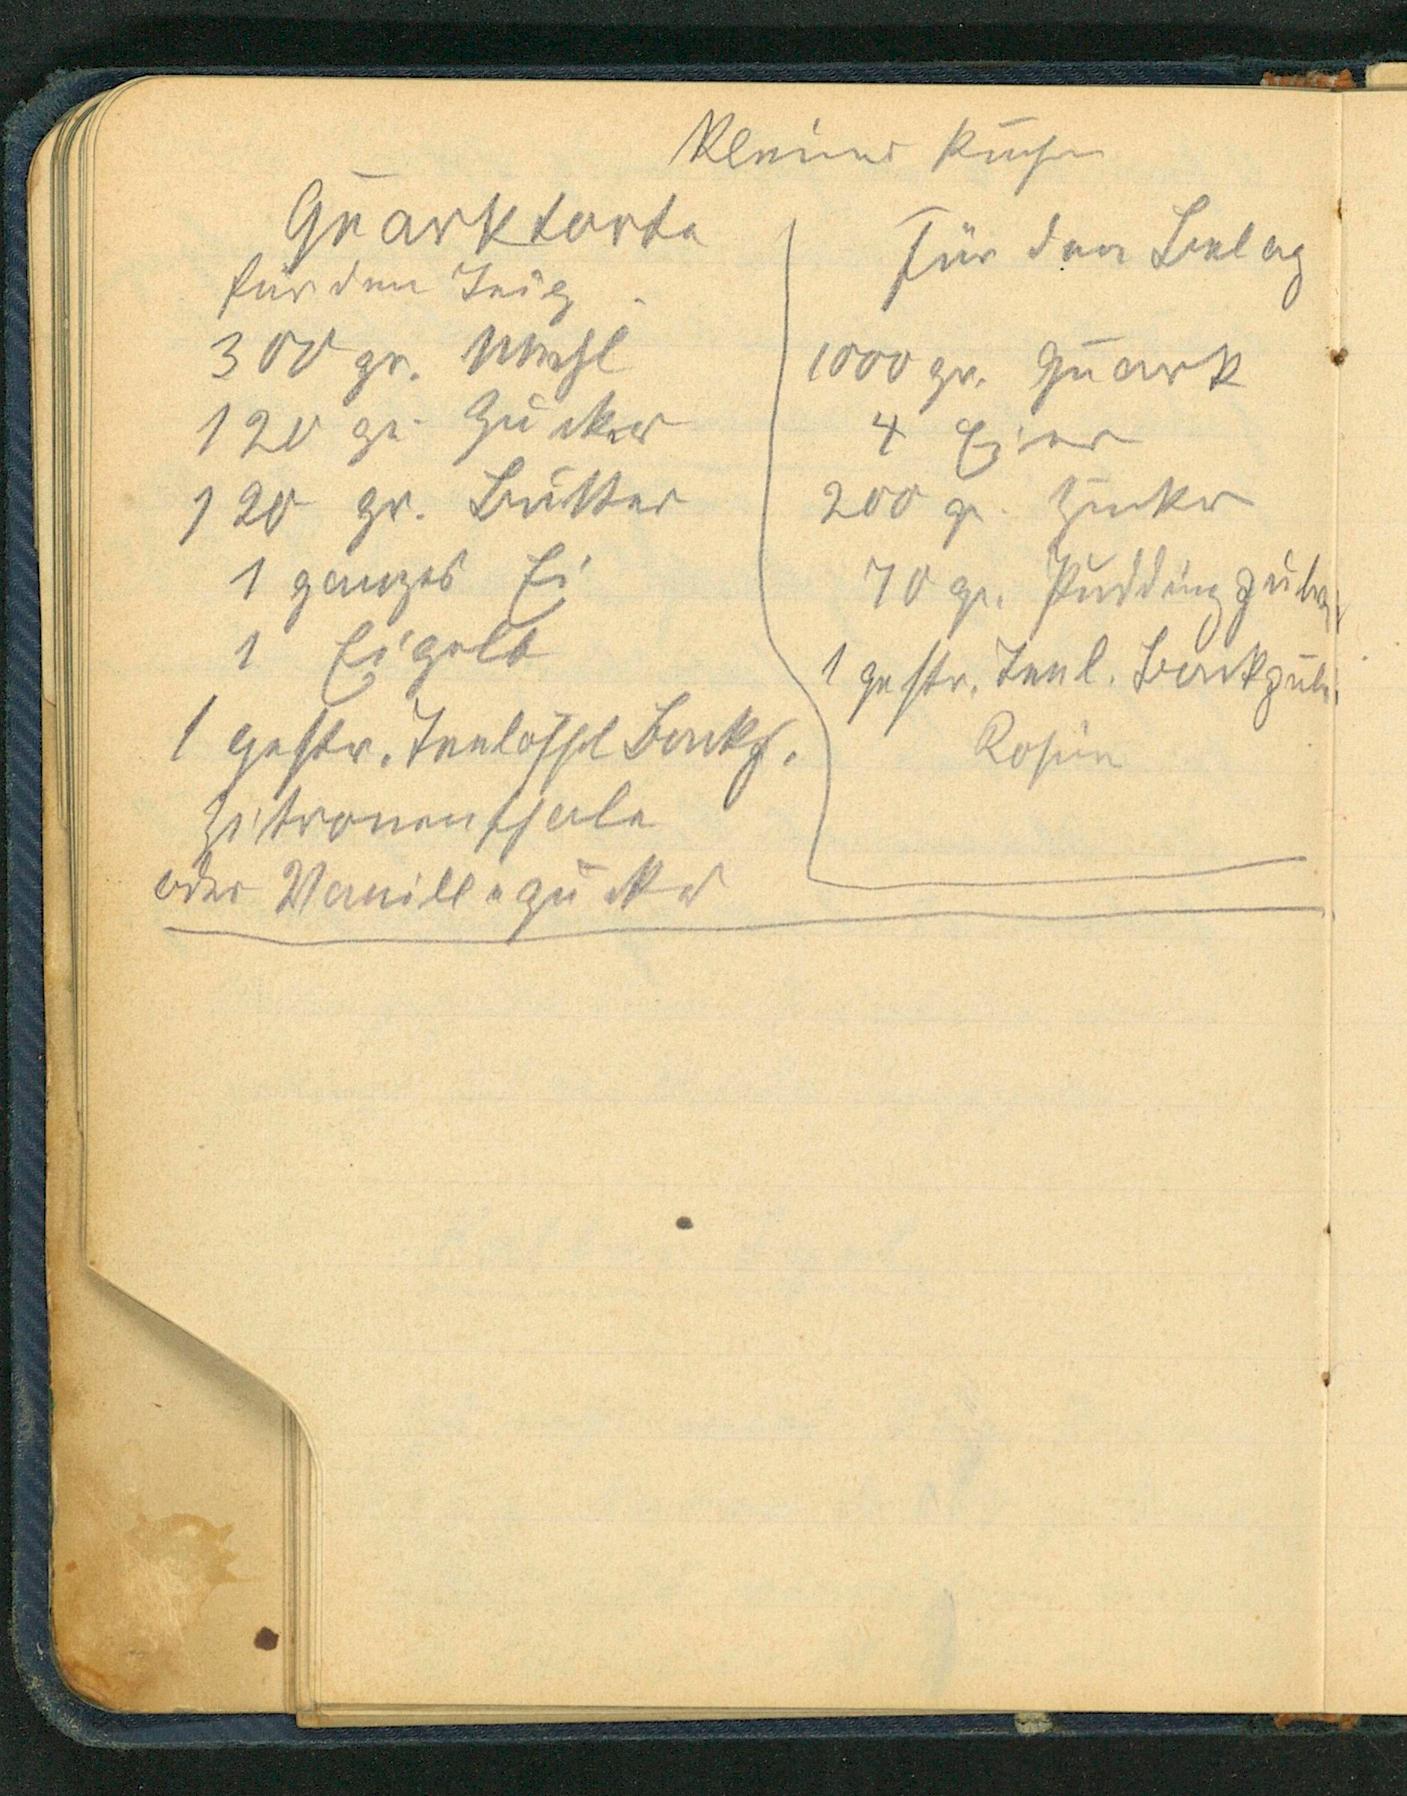 Kleiner Kuchen
Quarktorte
für den Teig
300 gr. Mehl
120 gr. Zucker
120 gr. Butter
1 ganzes Ei
1 Eigelb
1 gestr. Teelöffel Backp.
Zitronenschale
oder Vanillezucker
Für den Belag
1000 gr. Quark
4 Eier
200 gr. Zucker
70 gr. Puddingpulver
1 gestr. Teel. Backpulv.
Rosin